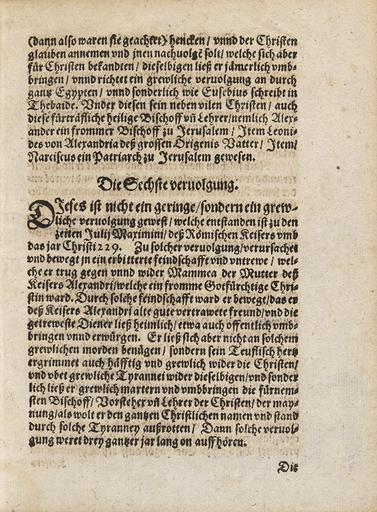 (dann also waren sie geachtet) hencken / vnnd der Christen
glauben annemen vnd jnen nachuolgē solt / welche sich aber
für Christen bekandten / dieselbigen ließ er jämerlich vmb-
bringen / vnnd richtet ein grewliche veruolgung an durch
gantz Egypten / vnnd sonderlich wie Eusebius schreibt in
Thebaide. Vnder diesen sein neben vilen Christen / auch
diese fürträffliche heilige Bischoff vn̄ Lehrer / nemlich Alex-
ander ein frommer Bischoff zu Jerusalem / Item Leoni-
des von Alexandria deß grossen Origenis Vatter / Item /
Narcissus ein Patriarch zu Jerusalem gewesen.
Die Sechste veruolgung.
DIeses ist nicht ein geringe / sondern ein grew-
liche veruolgung gewest / welche entstanden ist zu den
zeiten Julij Maximini / deß Römischen Keisers vmb
das jar Christi 229. Zu solcher veruolgung / verursachet
vnd bewegt jn ein erbitterte feindschafft vnd vntrewe / wel-
che er trug gegen vnnd wider Mammea der Mutter deß
Keisers Alexandri / welche ein fromme Gotfürchtige Chri-
stin ward. Durch solche feindschafft ward er bewegt / das er
deß Keisers Alexandri alte gute vertrawete freund / vnd die
getreweste Diener ließ heimlich / etwa auch öffentlich vmb-
bringen vnnd erwürgen. Er ließ sich aber nicht an solchem
grewlichen morden benügen / sondern sein Teuflisch hertz
ergrimmet auch häfftig vnd grewlich wider die Christen /
vnd vbet grewliche Tyrannei wider dieselbigen / vnd sonder
lich ließ er grewlich martern vnnd vmbbringen die fürnem-
sten Bischoff / Vorsteher vn̄ Lehrer der Christen / der may-
nung / als wolt er den gantzen Christlichen namen vnd stand
durch solche Tyranney außrotten / Dann solche veruol-
gung weret drey gantzer jar lang on auff hören.
Die